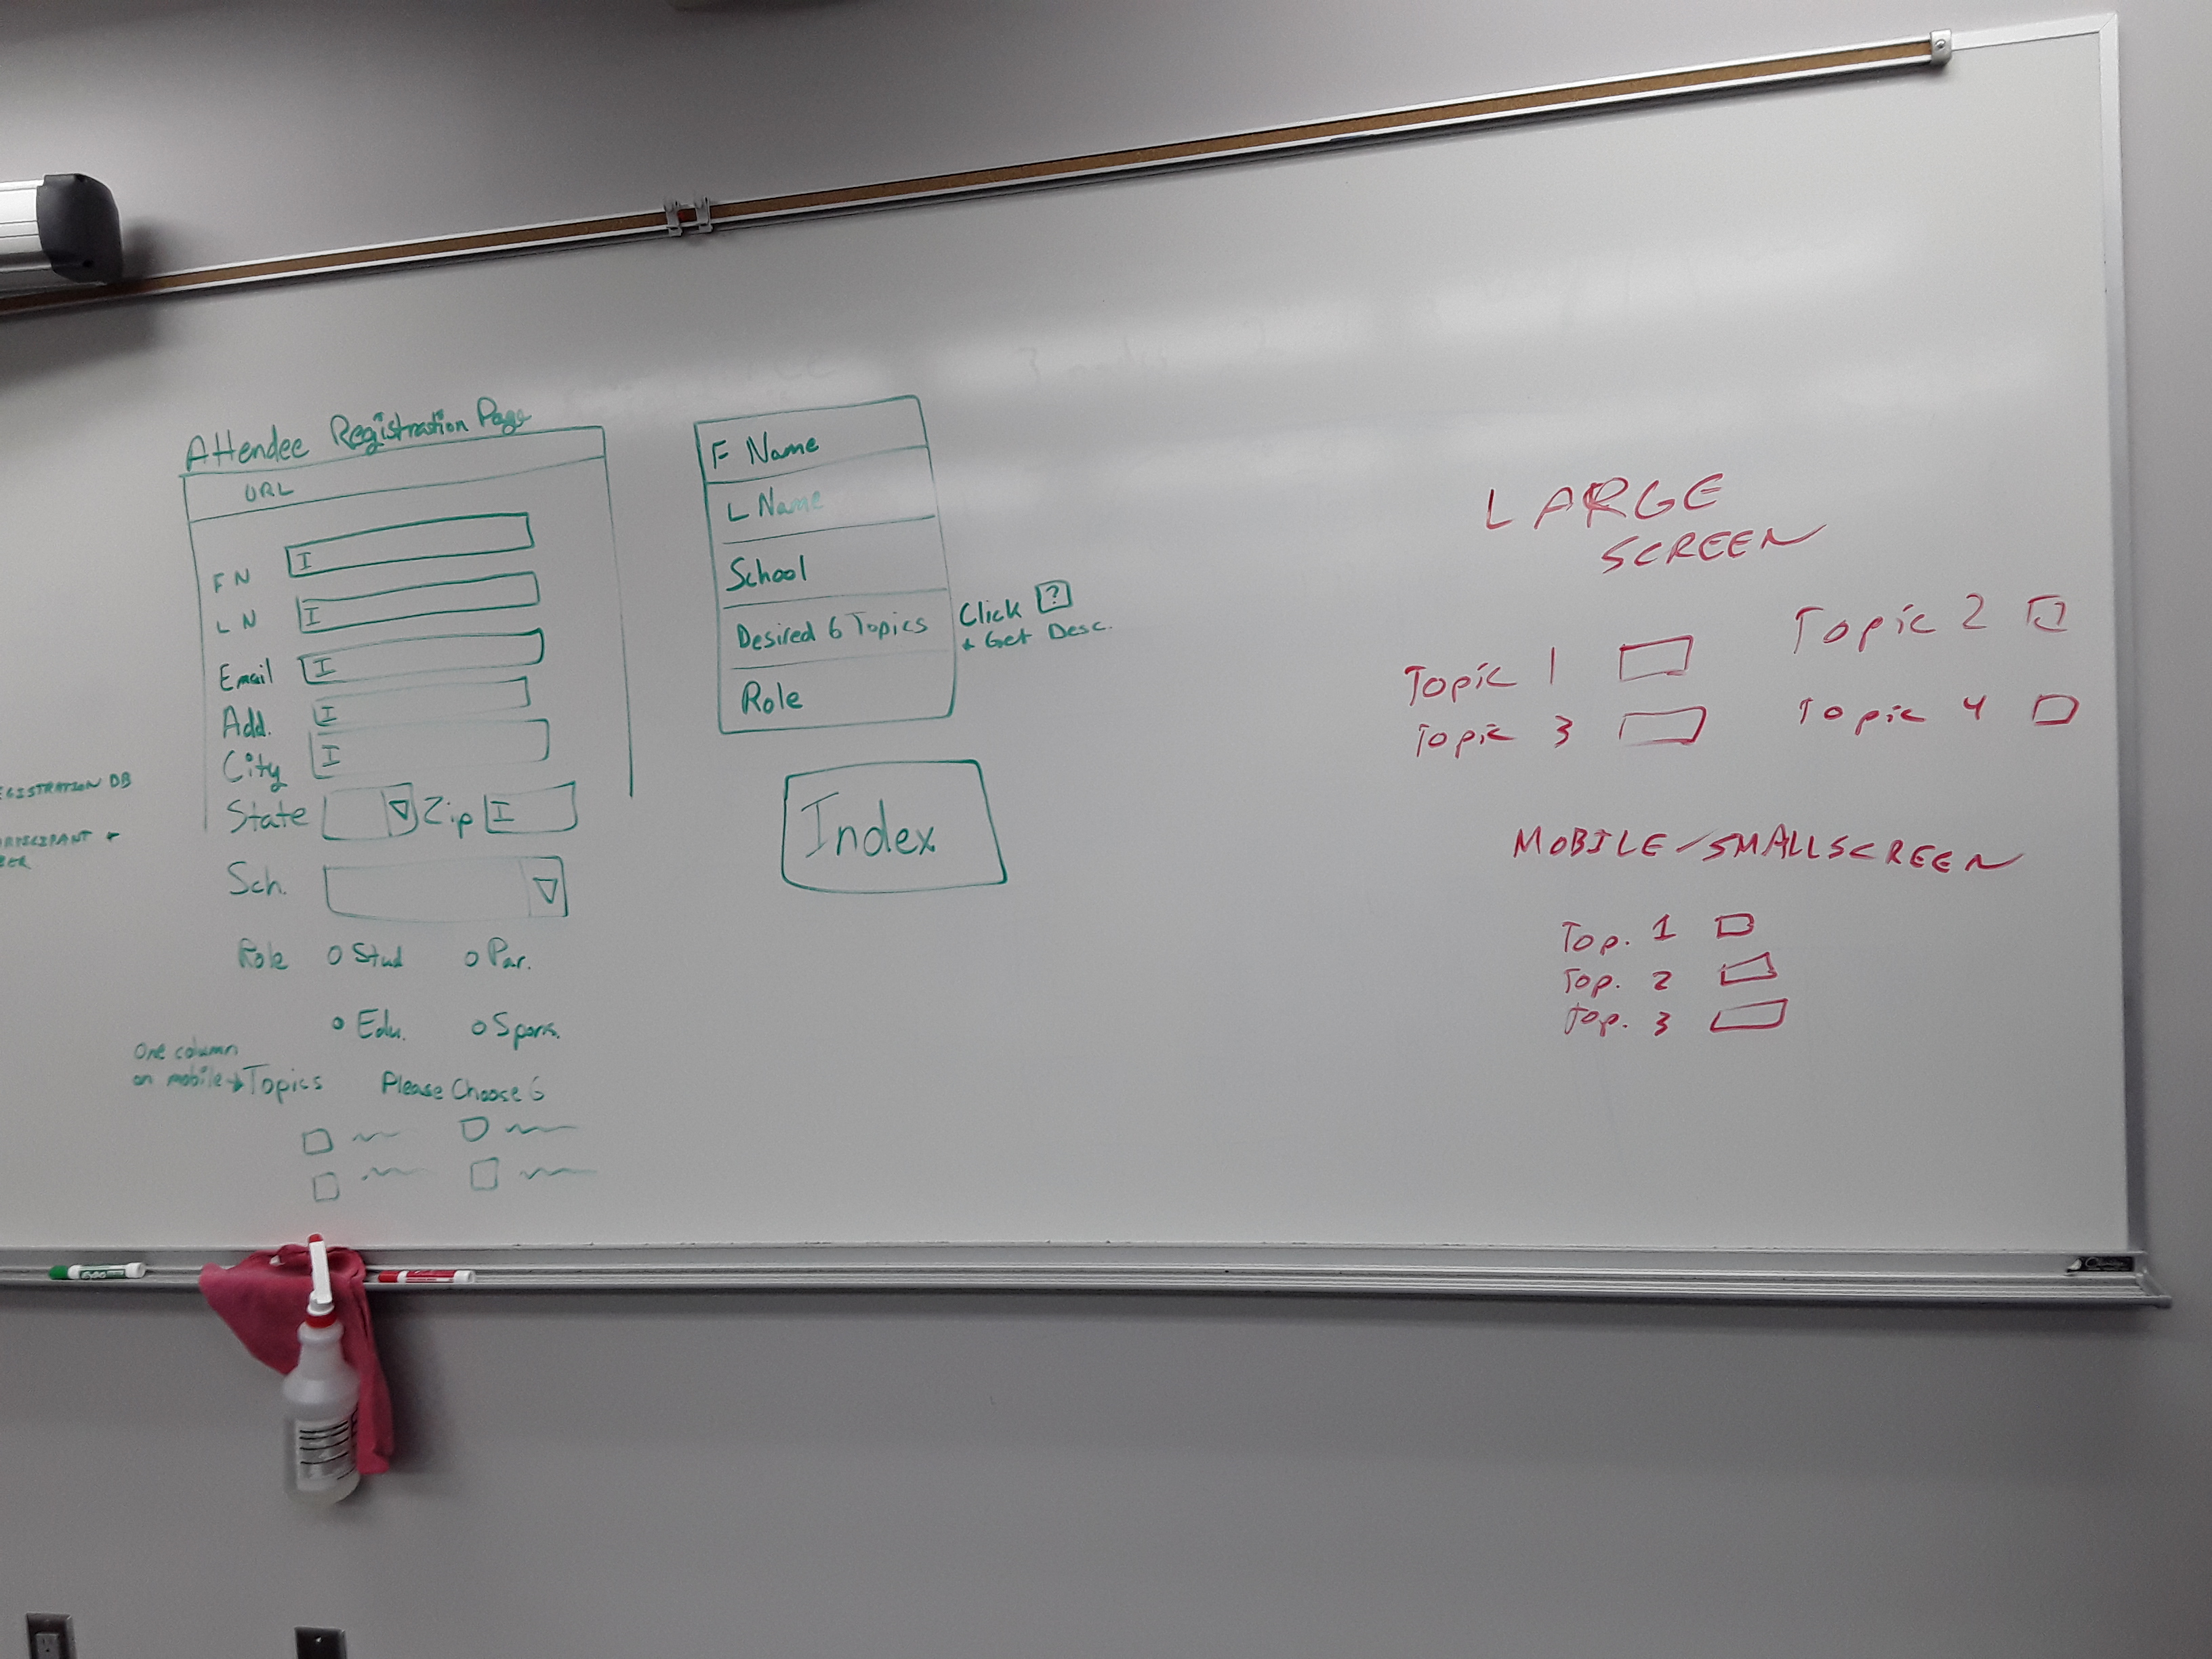 Attendee Registration Page
URL
FN
LN
Email
Add.
City
State Zip
Sch.
Role Stud Par.
Edu. Spons.
One column
on mobile → Topics Please Choose 6
REGISTRATION DB
F Name
L Name
School
Desired 6 Topics
Role
Click ?
+ Get Desc.
Index
LARGE
SCREEN
Topic 1 Topic 2
Topic 3 Topic 4
MOBILE/SMALLSCREEN
Top. 1
Top. 2
Top. 3